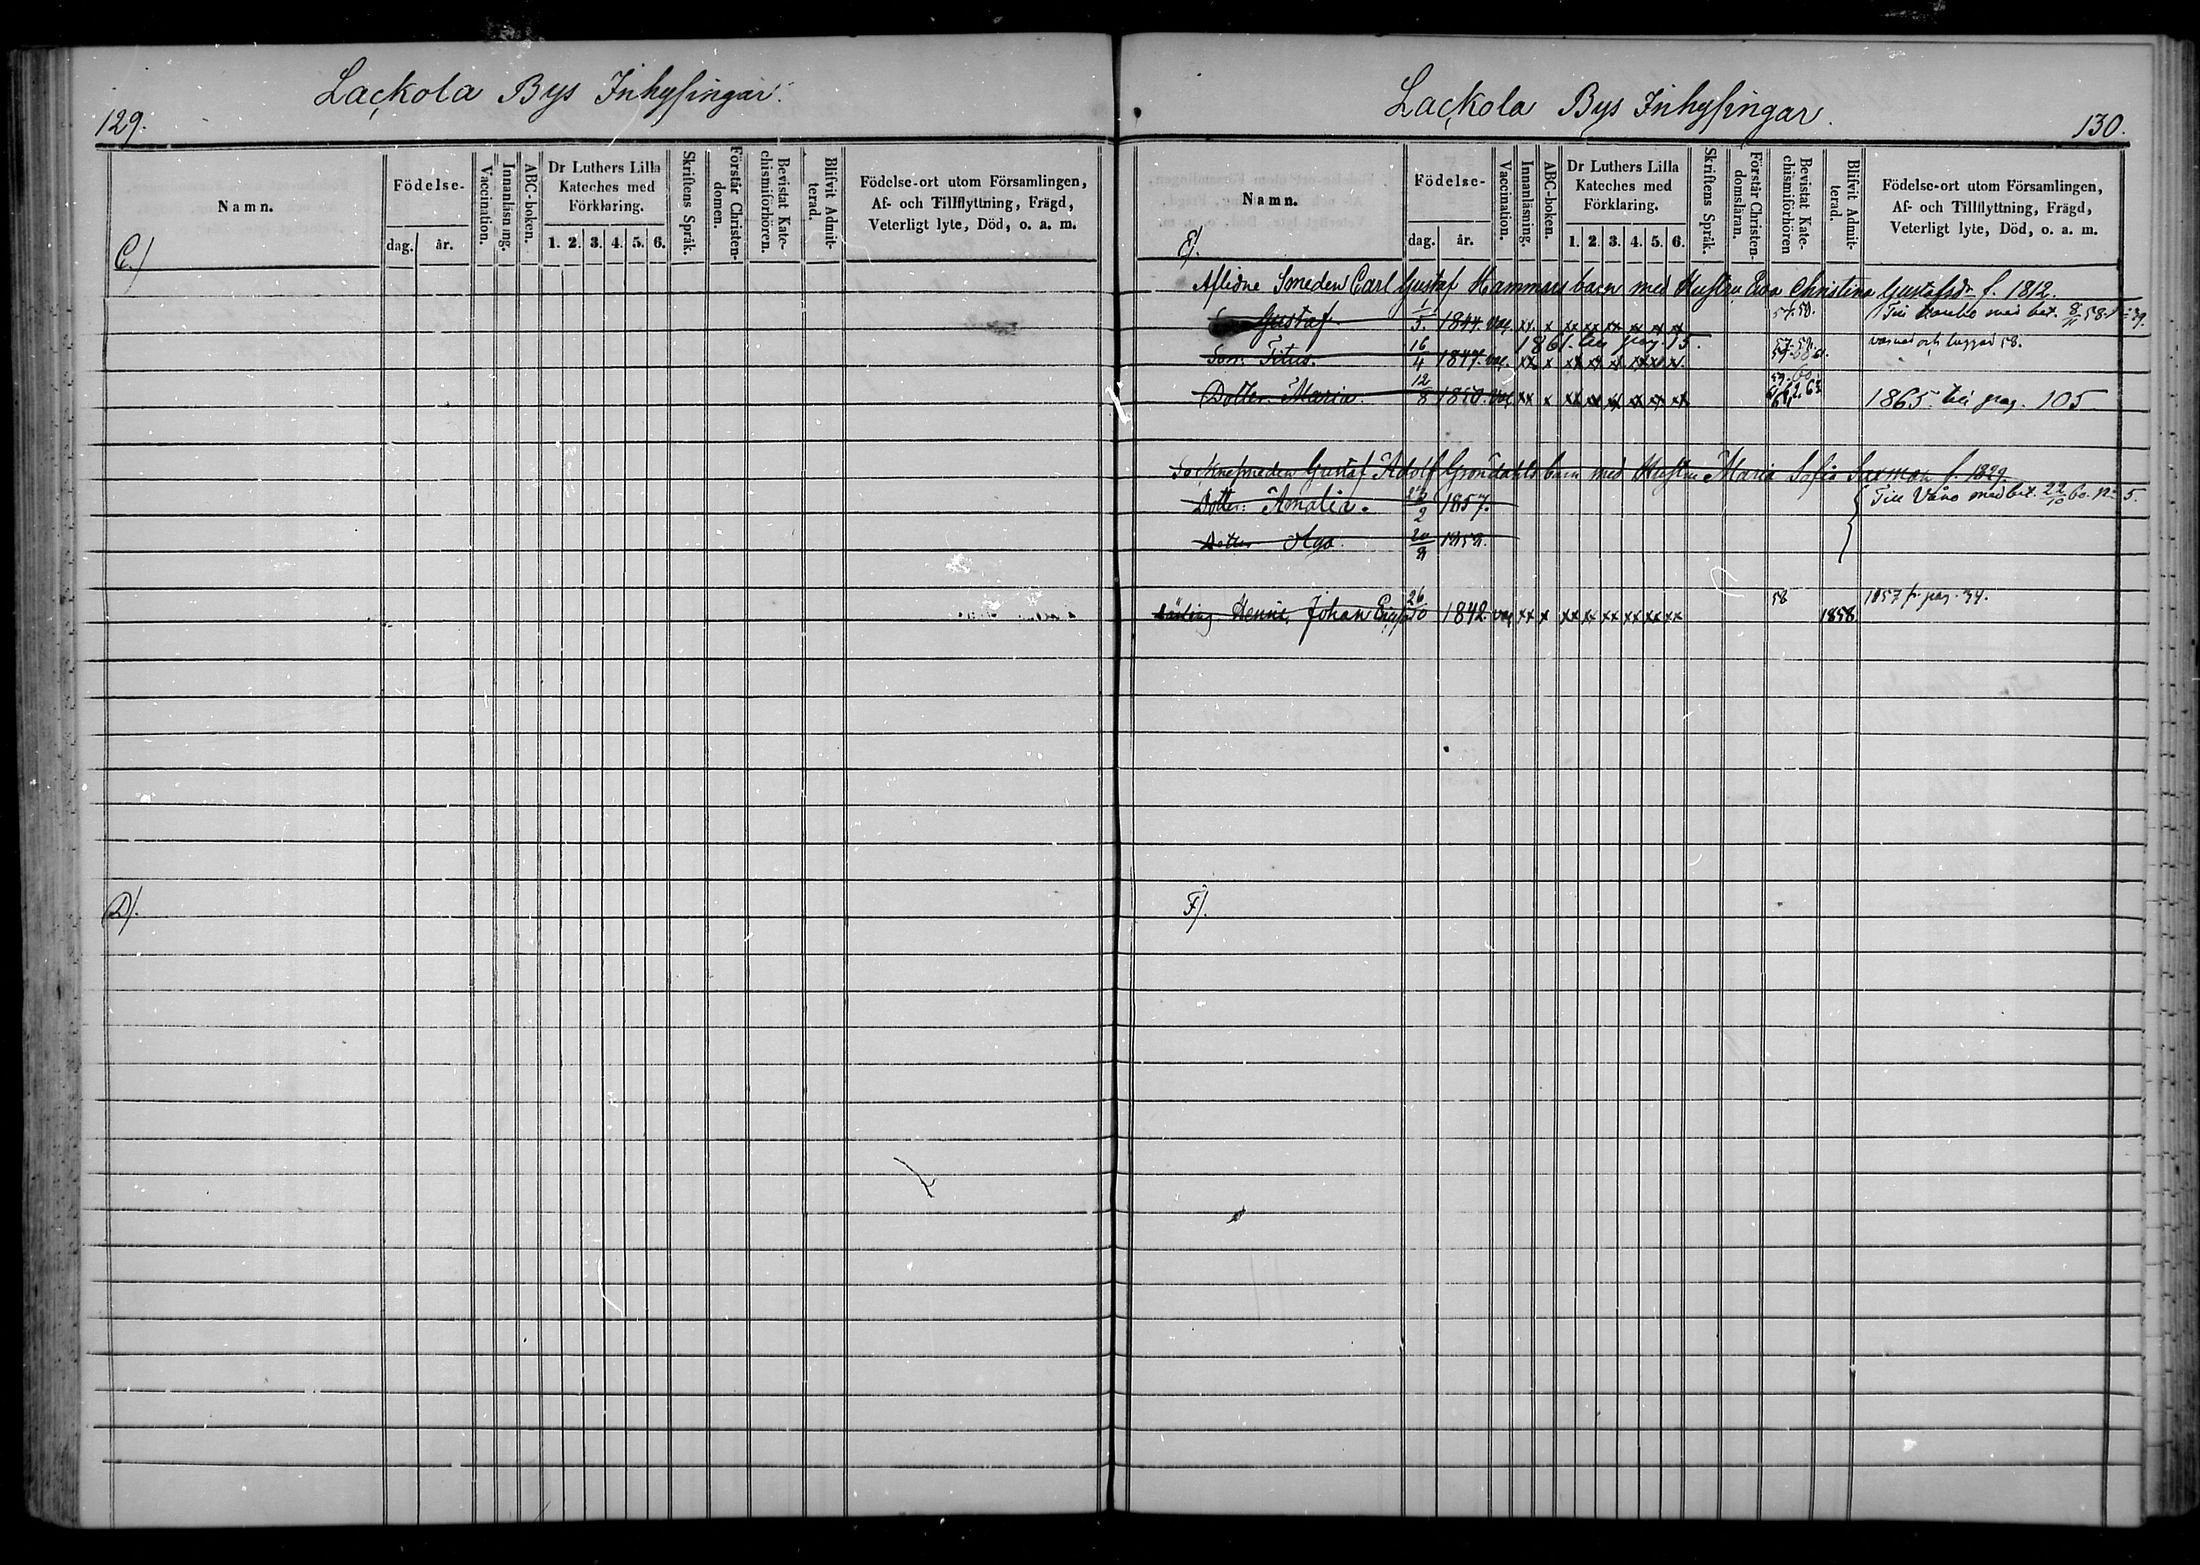 Lackola Bys Inhysingar.
129.
Namn.
Födelse-
dag. år.
Vaccination.
Innanläsning.
ABC-boken.
Dr Luthers Lilla
Kateches med
Förklaring.
1. 2. 3. 4. 5. 6.
Skriftens Språk.
Förstår Christen-
domen.
Bevistat Kate-
chismiförhören.
Blifvit Admit-
terad.
Födelse-ort utom Församlingen,
Af- och Tillflyttning, Frägd,
Veterligt lyte, Död, o. a. m.
C.)
D).
Lackola Bys Inhysingar.
130.
Namn.
Födelse-
dag. år.
Vaccination.
Innanläsning.
ABC-boken.
Dr Luthers Lilla
Kateches med
Förklaring.
1. 2. 3. 4. 5. 6.
Skriftens Språk.
Förstår Christen-
domsläran.
Bevistat Kate-
chismiförhören
Blifvit Admit-
terad.
Födelse-ort utom Församlingen,
Af- och Tillflyttning, Frägd,
Veterligt lyte, Död, o. a. m.
E).
Aflidne Smeden Carl Gustaf Hammars barn med Hustru Eva Christina Gustafsdr f. 1812.
Gustaf 1/5. 1844. vac. xx. x xx xx xx xx xx xx 57. 58. Till med bet. 8/11 58.
1861. till pag. 15.
Son: Titus. 16/4 1847. vac. xx x xx xx xx xx xx xx. 58.
Dotter: Maria. 12/8 1850. vac xx x xx xx xx xx xx xx 1865. till pag. 105
Socknesmeden Gustaf Adolf Gröndahls barn med Hustru Maria Sofia f. 1829.
Dotter: Amalia. 1857. Till Vånå med bet. 22/10 60. No 5.
Dotter Olga. 1859.
Henric Johan 26/10 1842. vac xx x xx xx xx xx xx xx 58 1858 1857 fr. pag. 34.
F).